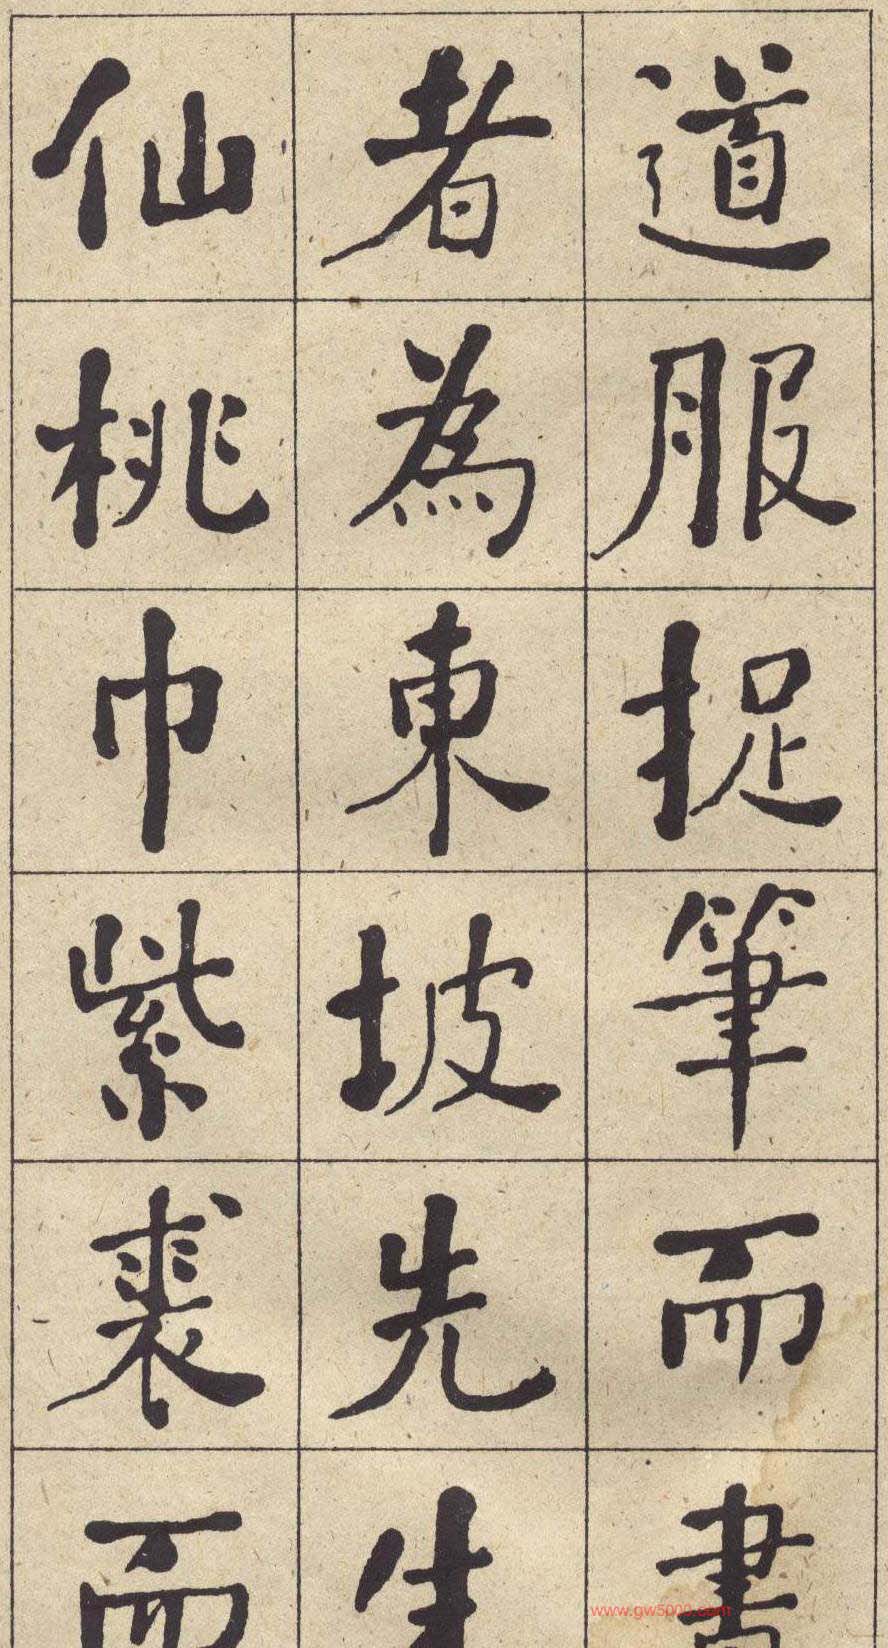 道服捉筆而書
者為東坡先生
仙桃巾紫裘而
www.gw5000.com